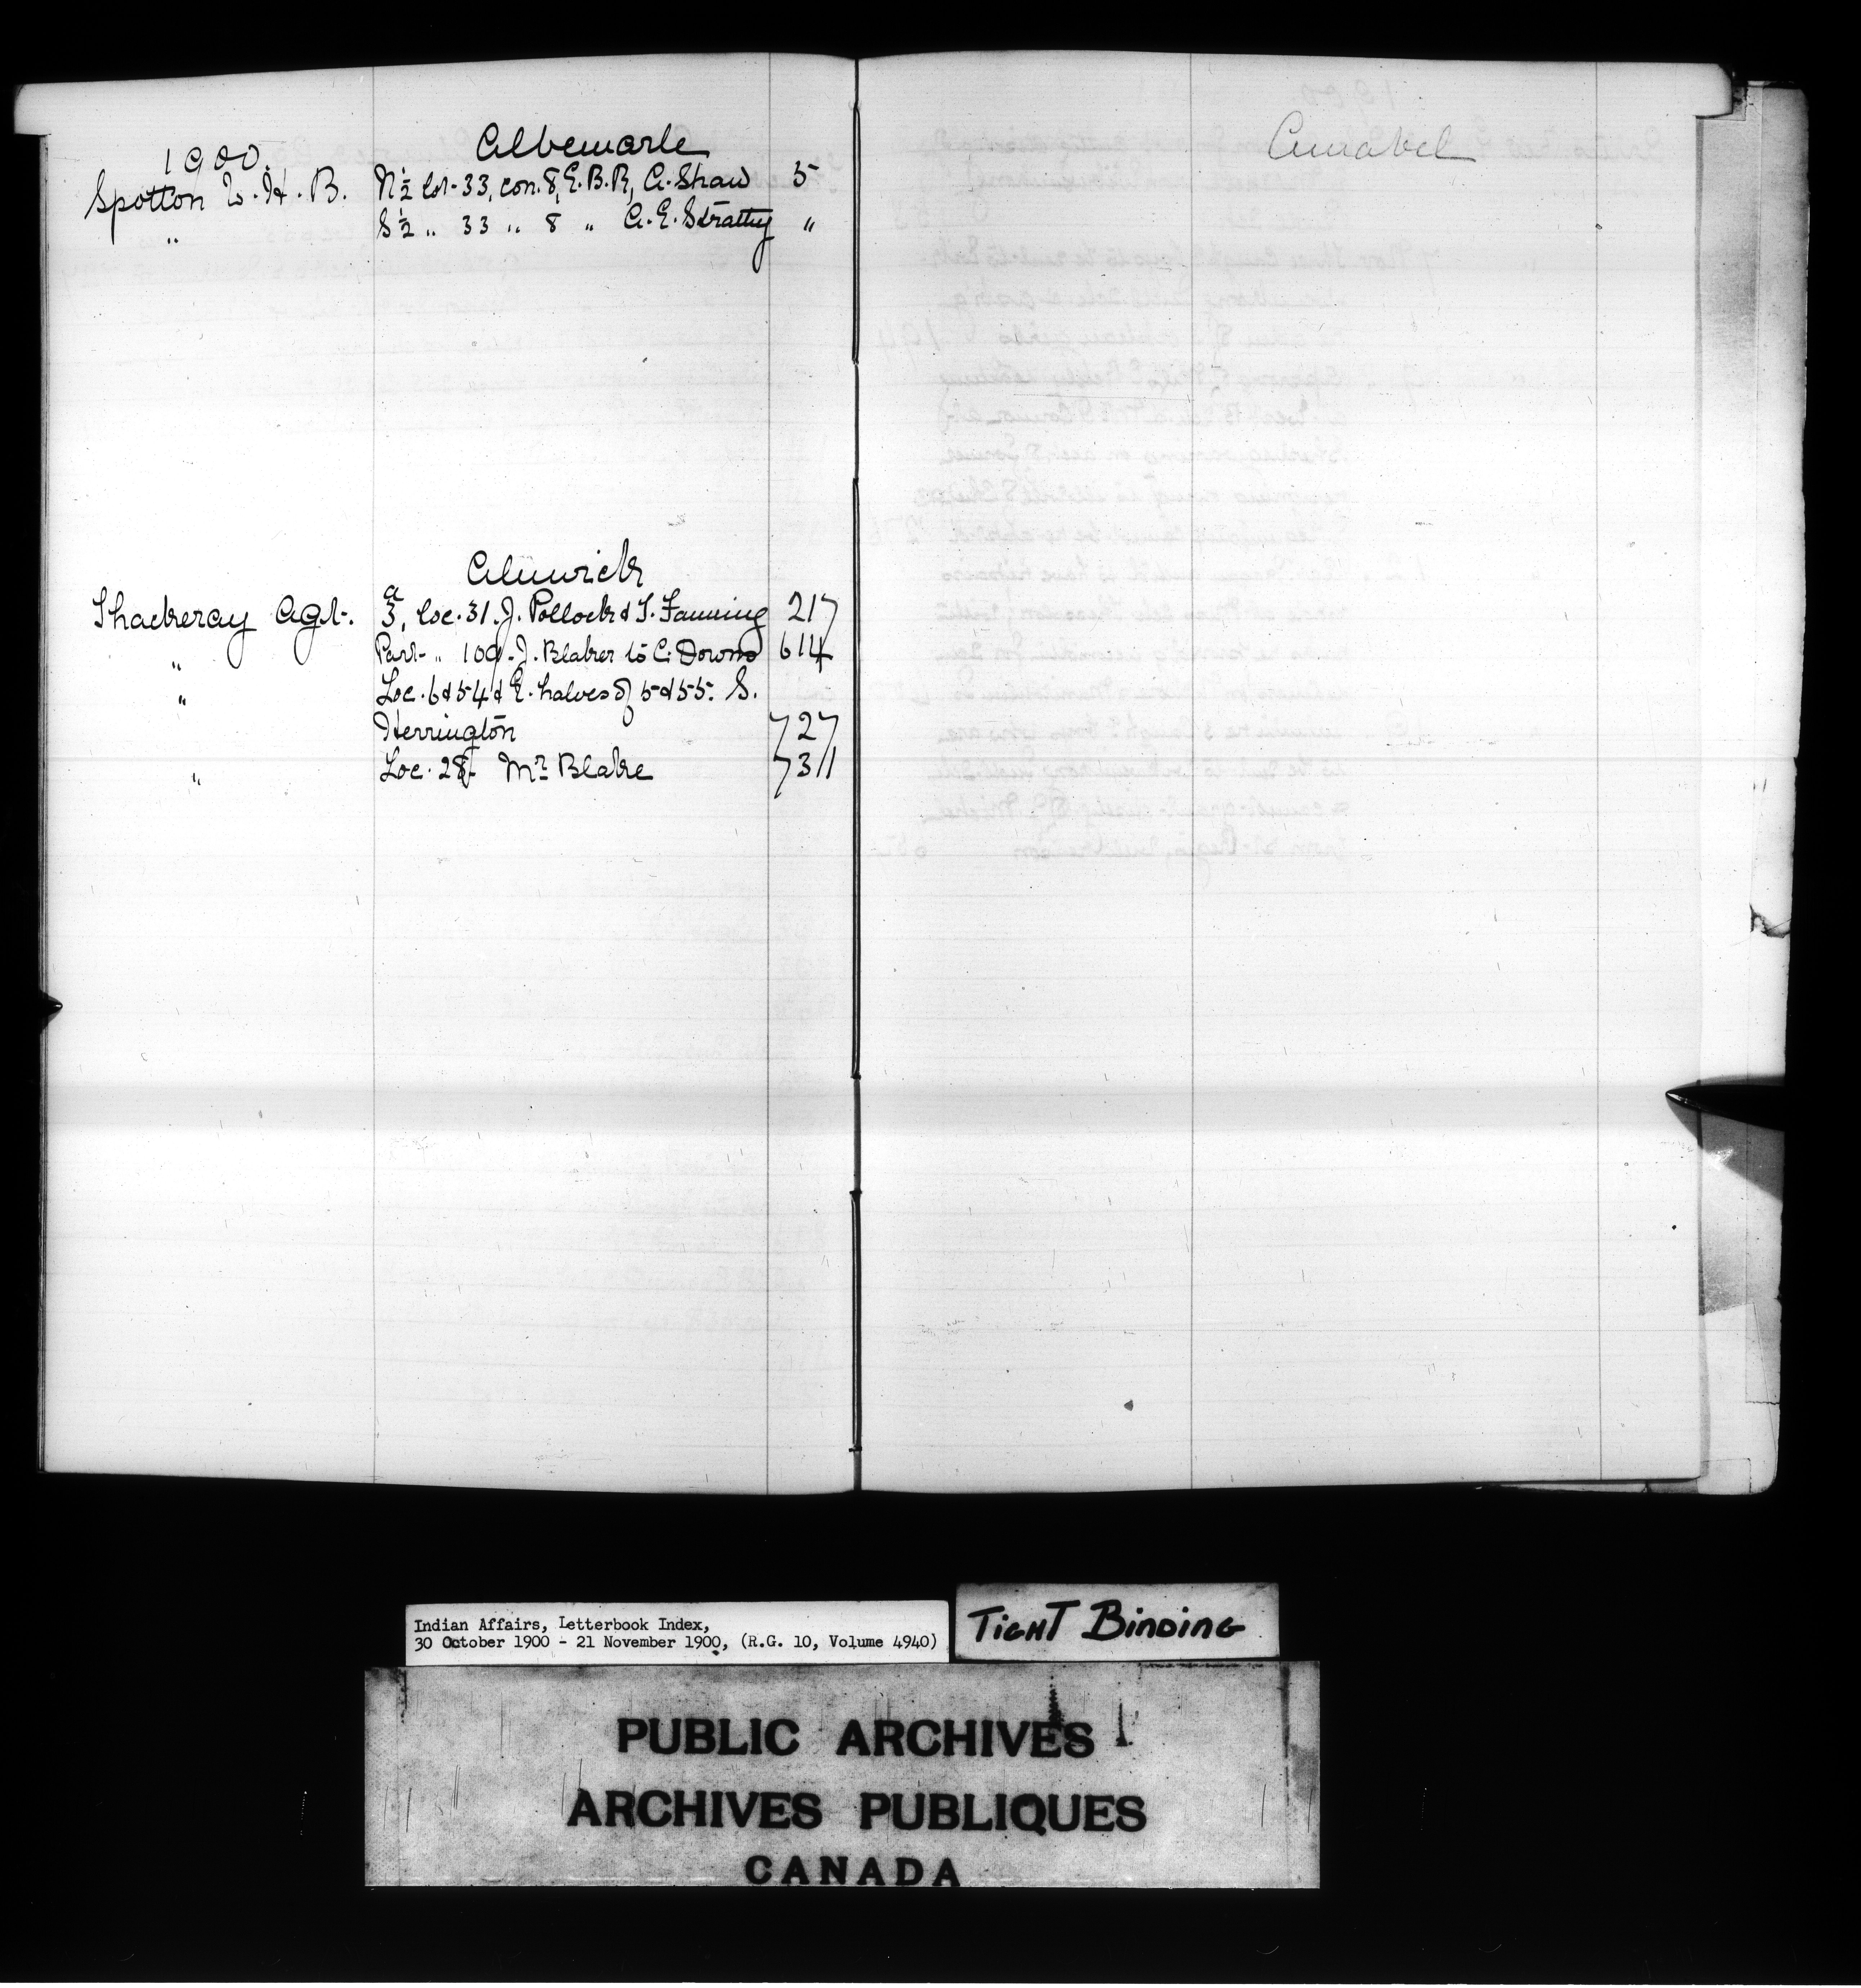 1900.
Albemarle
Spotton W. H. B. N ½ lot 33, con. 8, E. B. R, A. Shaw 5
" S ½ " 33 " 8 " A. E. Strathy "
Alnwick
Thackeray Agt. a/3, loc. 31. J. Pollock & T. Fanning 217
" Part " 109. J. Blaker to C. Downs 614
" Loc. 6 & 54 & E. halves of 5 & 55. S.
Herrington 727
" Loc. 28. Mr. Blake 731
Amabel
Indian Affairs, Letterbook Index,
30 October 1900 - 21 November 1900, (R.G. 10, Volume 4940)
TIGHT BINDING
PUBLIC ARCHIVES
ARCHIVES PUBLIQUES
CANADA